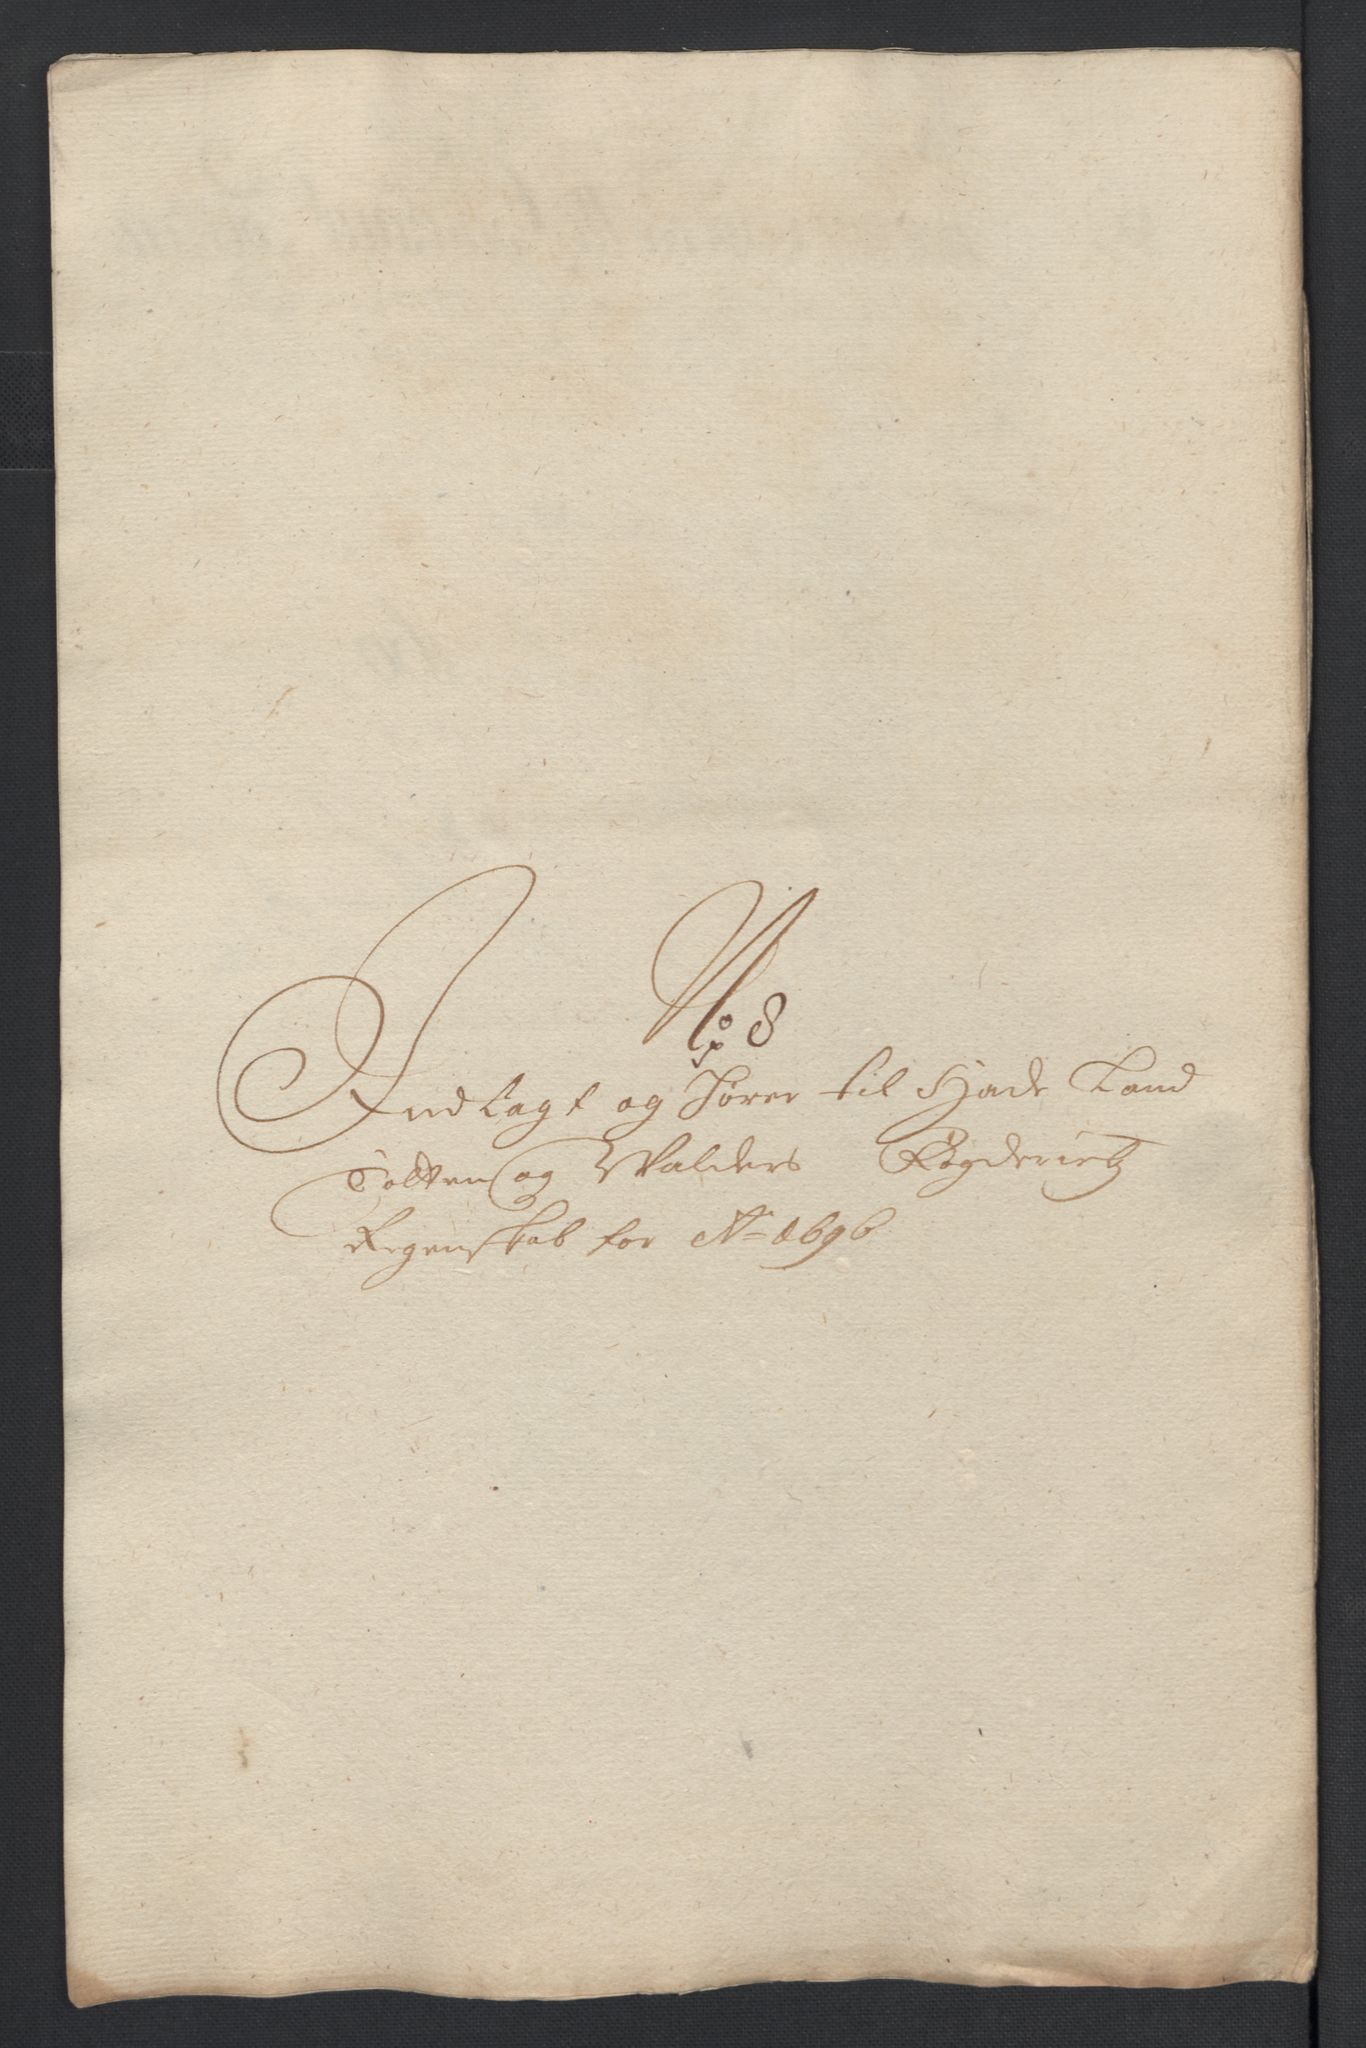 No: 8
Indlagt og Hører til Hade Land
Totten og Walders Fogderietz
Regenskab for Ao 1696